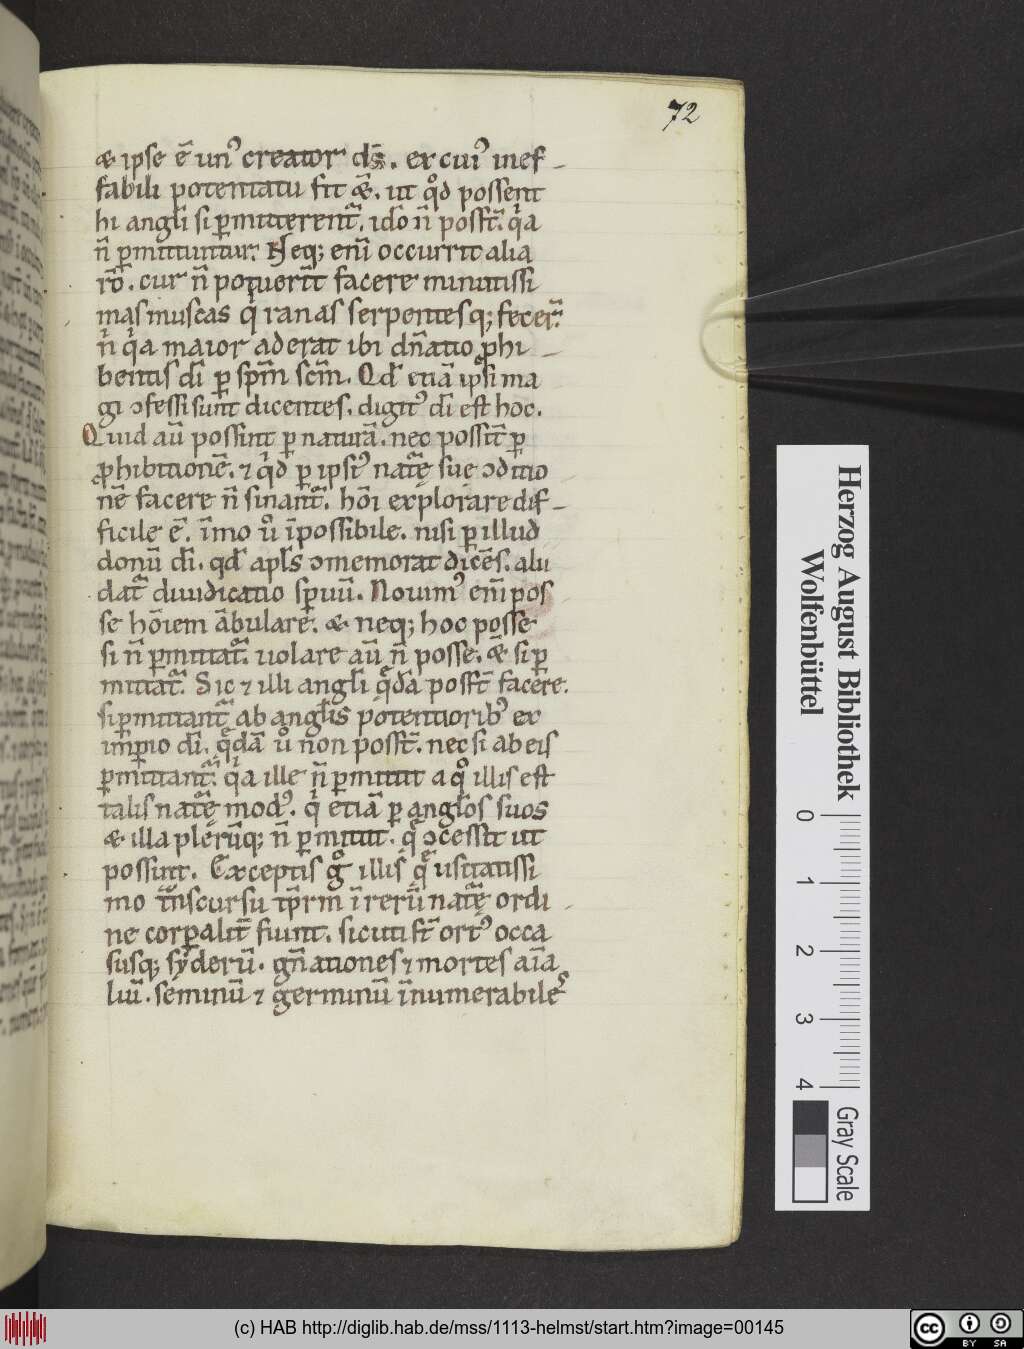 72
& ipse ē un᷒ creator ds̄. ex cui᷒ inef-
fabili potentatu fit &̄. ut qͦd possent
hi angli̅ si ꝑmitterent᷑. idō n̄ poss̄t. qⁱa
n̄ ꝑmittuntur. Neq; enī occurrit alia
rō. cur n̄ potuerīt facere minutissi
mas muscas qⁱ ranas serpentesq; fecer̄t.
n̄ qⁱa maior aderat ibi dn̄atio ꝓhi-
bentis dī ꝑ spm̄ scm̄. Qd̄ etiā ipsi ma
gi ↄfessi sunt dicentes. digit᷒ dī est hoc.
Quid aū possint ꝑ naturā. nec possīt ꝑ
ꝓhibitionē. ⁊ qⁱd ꝑ ipsi᷒ nat᷑ę sue ↄditio
nē facere n̄ sinant᷑. hōi explorare dif-
ficile ē. īmo uͦ īpossibile. nisi ꝑ illud
donū dī. qd̄ apl̄s ↄmemorat dicēs. alii
dat᷑ diiudicatio spirituū. Nouim᷒ enī pos
se hōiem ābulare. & neq; hoc posse
si n̄ ꝑmittat᷑. uolare aū n̄ posse. &̄ si ꝑ
mittat᷑. Sic ⁊ illi angli̅ qͣ̄dā poss̄t facere.
si ꝑmittant᷑ ab angl̄is potentiorib᷒ ex
imꝑio dī. qͣ̄dā uͦ non poss̄t. nec si ab eis
ꝑmittant᷑. qⁱa ille n̄ ꝑmittit a qͦ illis est
talis nat᷑ę mod᷒. qⁱ etiā ꝑ angl̄os suos
& illa plerūq; n̄ ꝑmittit. qͣ̄ ↄcessit ut
possint. Exceptis gͦ illis qͣ̄ usitatissi
mo tͣnscursu tp̄rm ī rerū nat᷑ę ordi-
ne corꝑalit̄ fiunt. sicuti st̄ ort᷒ occa
susq; syderū. gn̄ationes ⁊ mortes aīa
liū. seminū ⁊ germinū īnumerabiles
Herzog August Bibliothek
Wolfenbüttel
0 1 2 3 4
Gray Scale
(c) HAB http://diglib.hab.de/mss/1113-helmst/start.htm?image=00145
cc BY SA